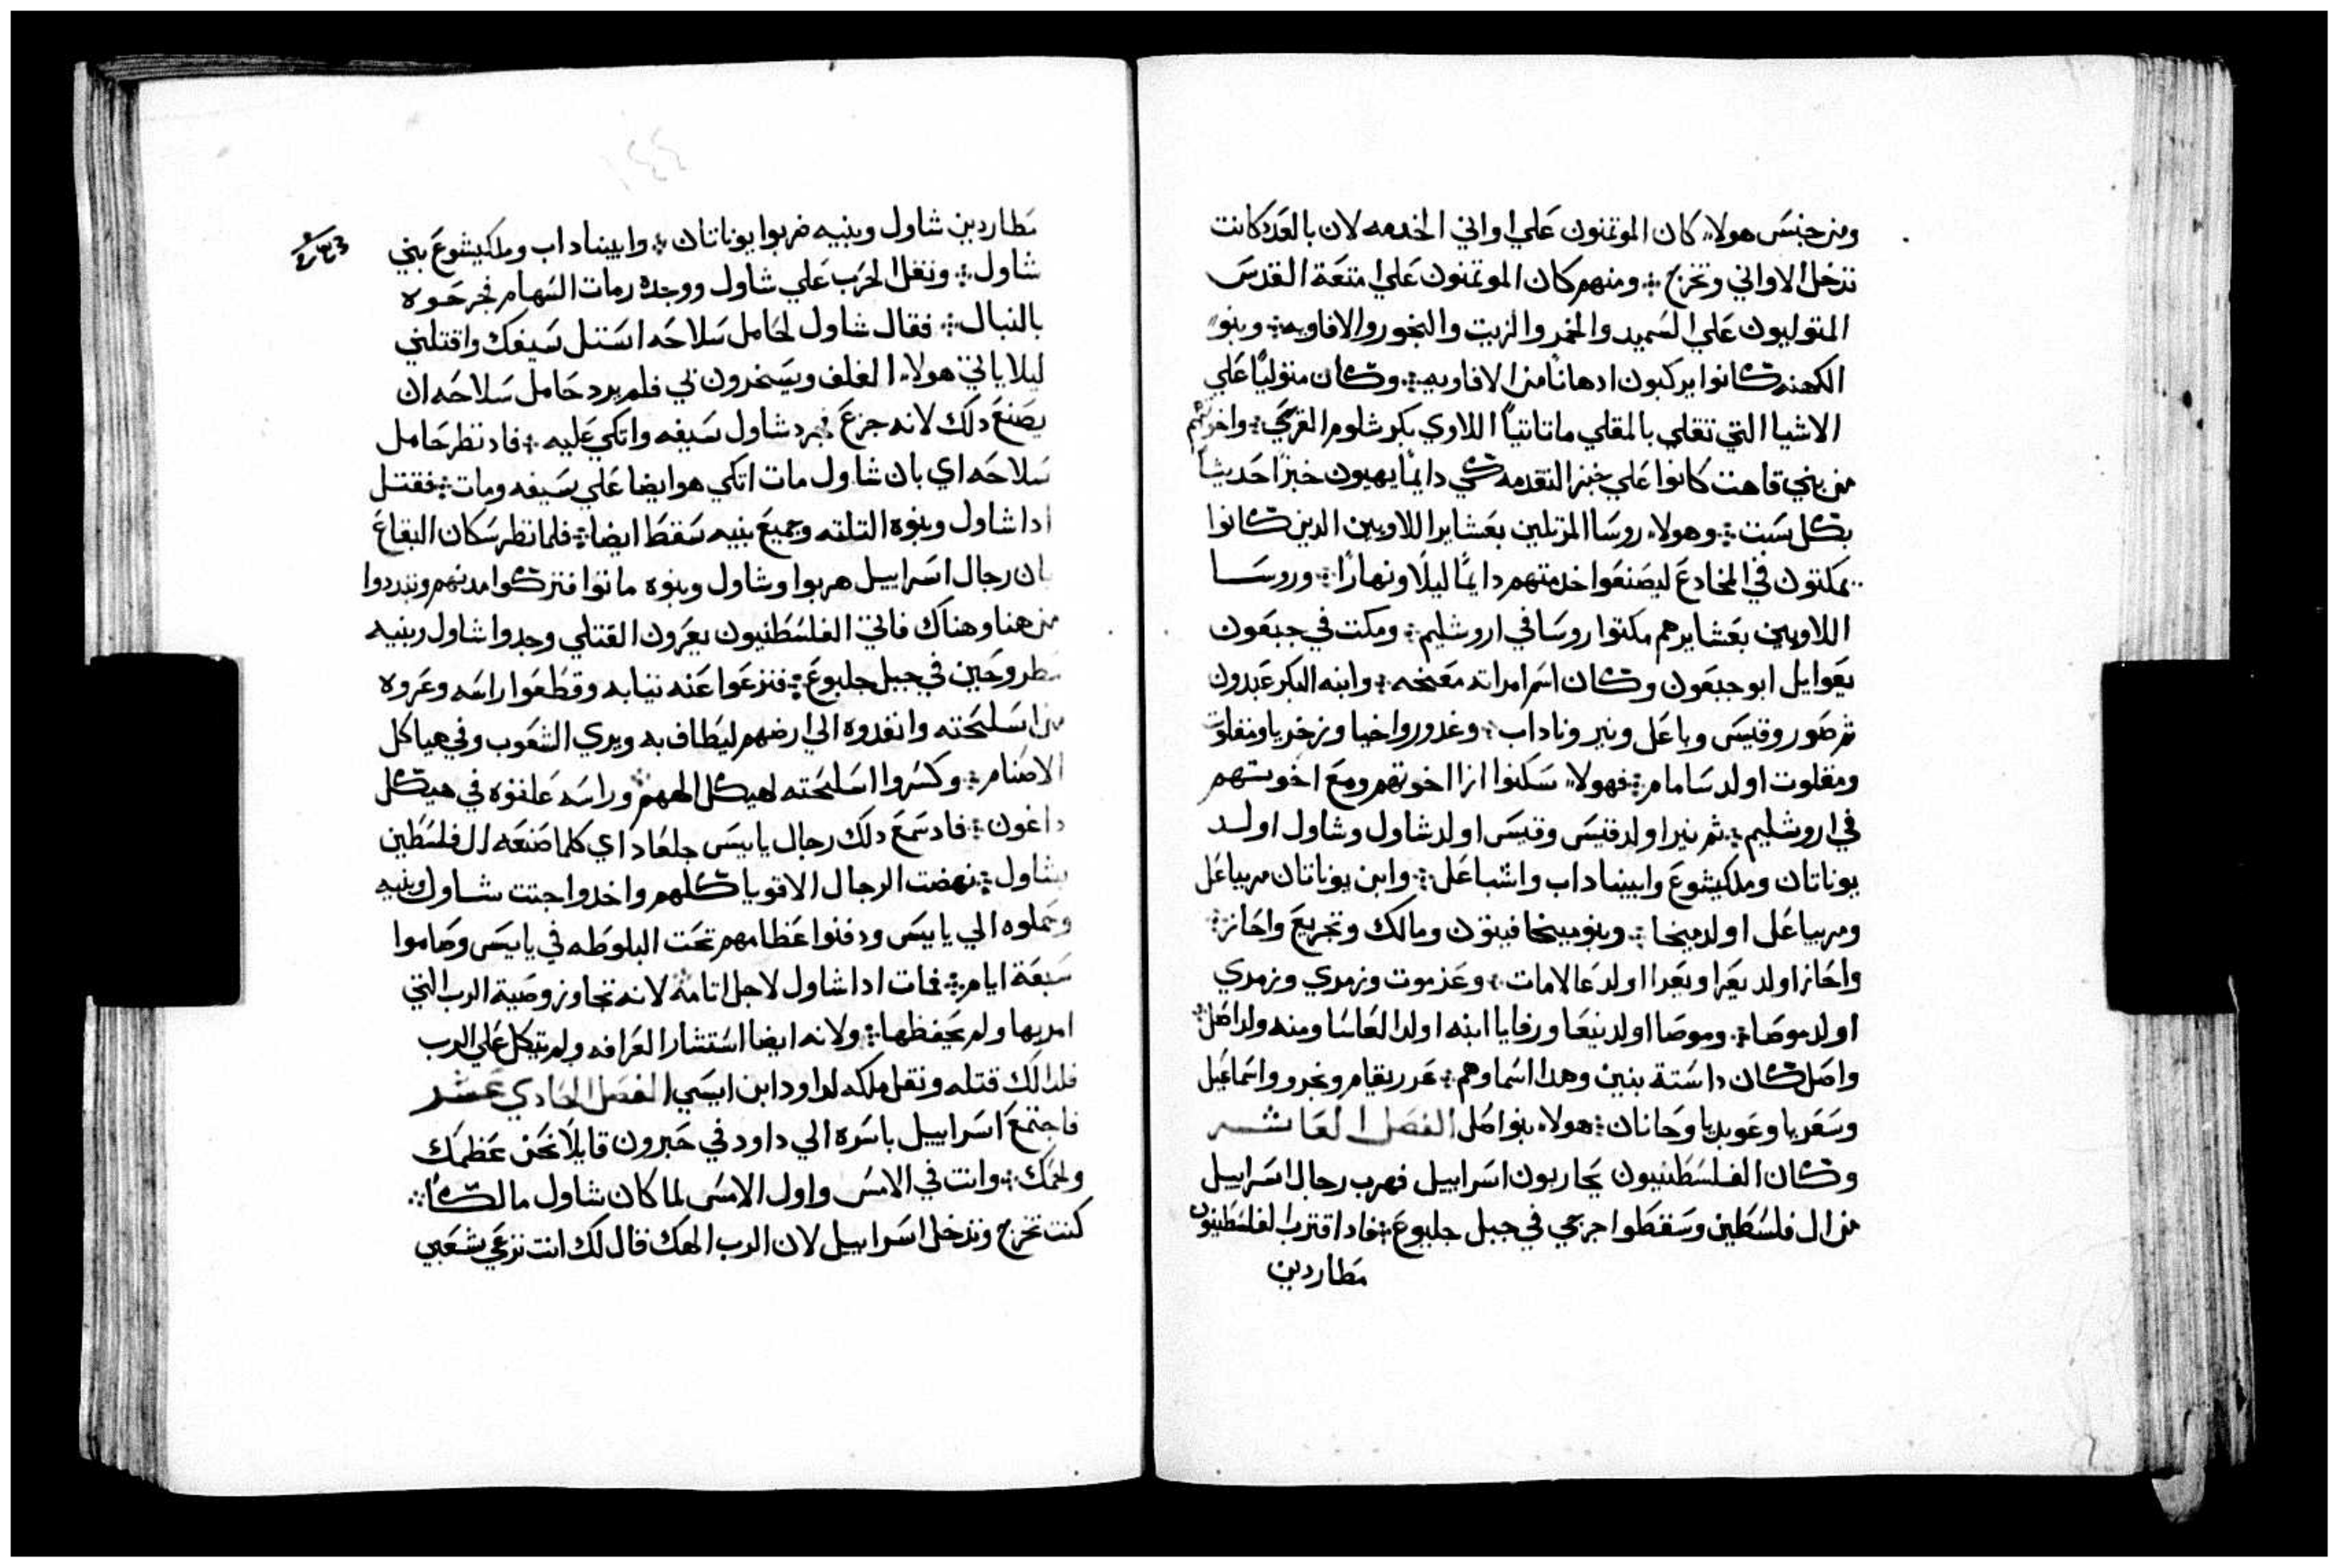 ومن جنس هولاء كان الموتمنون علي اواني الخدمه لان بالعدد كانت
تدخل الاواني وتخرج ومنهم كان الموتمنون علي امتعة القدس
المتوليون علي السميد والخمر والزيت والبخور والافاويه وبنو
الكهنه كانوا يركبون ادهانا من الافاويه وكان متوليا علي
الاشيا التي تقلي بالمقلي ماتاتيا اللاوي بكر شلوم القرحي واخوتهم
من بني قاهت كانوا علي خبز التقدمه كي دايما يهيون خبزا حديثا
بكل سبت وهولاء روسا المرتلين بعشاير اللاويين الدين كانوا
يمكتون في المخادع ليصنعوا خدمتهم دايما ليلا ونهارا وروسا
اللاويين بعشايرهم مكتوا روسا في اروشليم ومكت في جبعون
يعوايل ابو جبعون وكان اسم امراته معخه وابنه البكر عبدون
تم صور وقيس وباعل ونير وناداب وغدور واخيا وزخريا ومقلوت
ومقلوت اولد ساماام فهولاء سكنوا ازا اخوتهم ومع اخوتهم
في اروشليم تم نير اولد قيس وقيس اولد شاول وشاول اولد
يوناتان وملكيشوع وابيناداب واشباعل وابن يوناتان مريباعل
ومريباعل اولد ميخا وبنو ميخا فيتون ومالك وتحريع واحاز
واحاز اولد يعرا ويعرا اولد عالامات وعزموت وزمري وزمري
اولد موصا وموصا اولد بنعا ورفايا ابنه اولد العاسا ومنه ولد اصل
واصل كان دا ستة بنين وهدا اسماوهم عزريقام وبخرو واسماعيل
وسعريا وعوبديا وحانان هولاء بنو اصل الفصل العاشر
وكان الفلسطنيون يحاربون اسراييل فهرب رجال اسراييل
من ال فلسطين وسقطوا جرحي في جبل جلبوع فاد اقترب الفلسطنيون
مطاردين
مطاردين شاول وبنيه ضربوا يوناتان وابيناداب وملكيشوع بني
شاول وتقل الحرب علي شاول ووجده رمات السهام فجرحوه
بالنبال فقال شاول لحامل سلاحه استل سيفك واقتلني
ليلا ياتي هولاء الغلف ويسخرون بي فلم يرد حامل سلاحه ان
يصنع دلك لانه جزع فجرد شاول سيفه واتكي عليه فاد نظر حامل
سلاحه اي بان شاول مات اتكي هو ايضا علي سيفه ومات فقتل
ادا شاول وبنوه التلته وجميع بنيه سقط ايضا فلما نظر سكان البقاع
بان رجال اسراييل هربوا وشاول وبنوه ماتوا فتركوا مدنهم وتبددوا
من هنا وهناك فاتي الفلسطنيون يعرون القتلي وجدوا شاول وبنيه
مطروحين في جبل جلبوع فنزعوا عنه تيابه وقطعوا راسه وعروه
من اسلحته وانفدوه الي ارضهم ليطاف به ويري الشعوب وفي هياكل
الاصنام وكسروا اسلحته لهيكل الههم وراسه علقوه في هيكل
داغون فاد سمع دلك رجال يابيس جلعاد اي كلما صنعه ال فلسطين
بشاول نهضت الرجال الاقويا كلهم واخدوا جتت شاول وبنيه
وحملوه الي يابيس ودفنوا عظامهم تحت البلوطه في يابيس وصاموا
سبعة ايام فمات ادا شاول لاجل اتامه لانه تجاوز وصية الرب التي
امر بها ولم يحفظها ولانه ايضا استشار العرافه ولم يتكل علي الرب
فلدالك قتله ونقل ملكه لداود ابن ايسي الفصل الحادي عشر
فاجتمع اسراييل باسره الي داود في حبرون قايلا نحن عظمك
ولحمك وانت في الامس واول الامس لما كان شاول مالكا
كنت تخرج وتدخل اسراييل لان الرب الهك قال لك انت ترعي شعبي